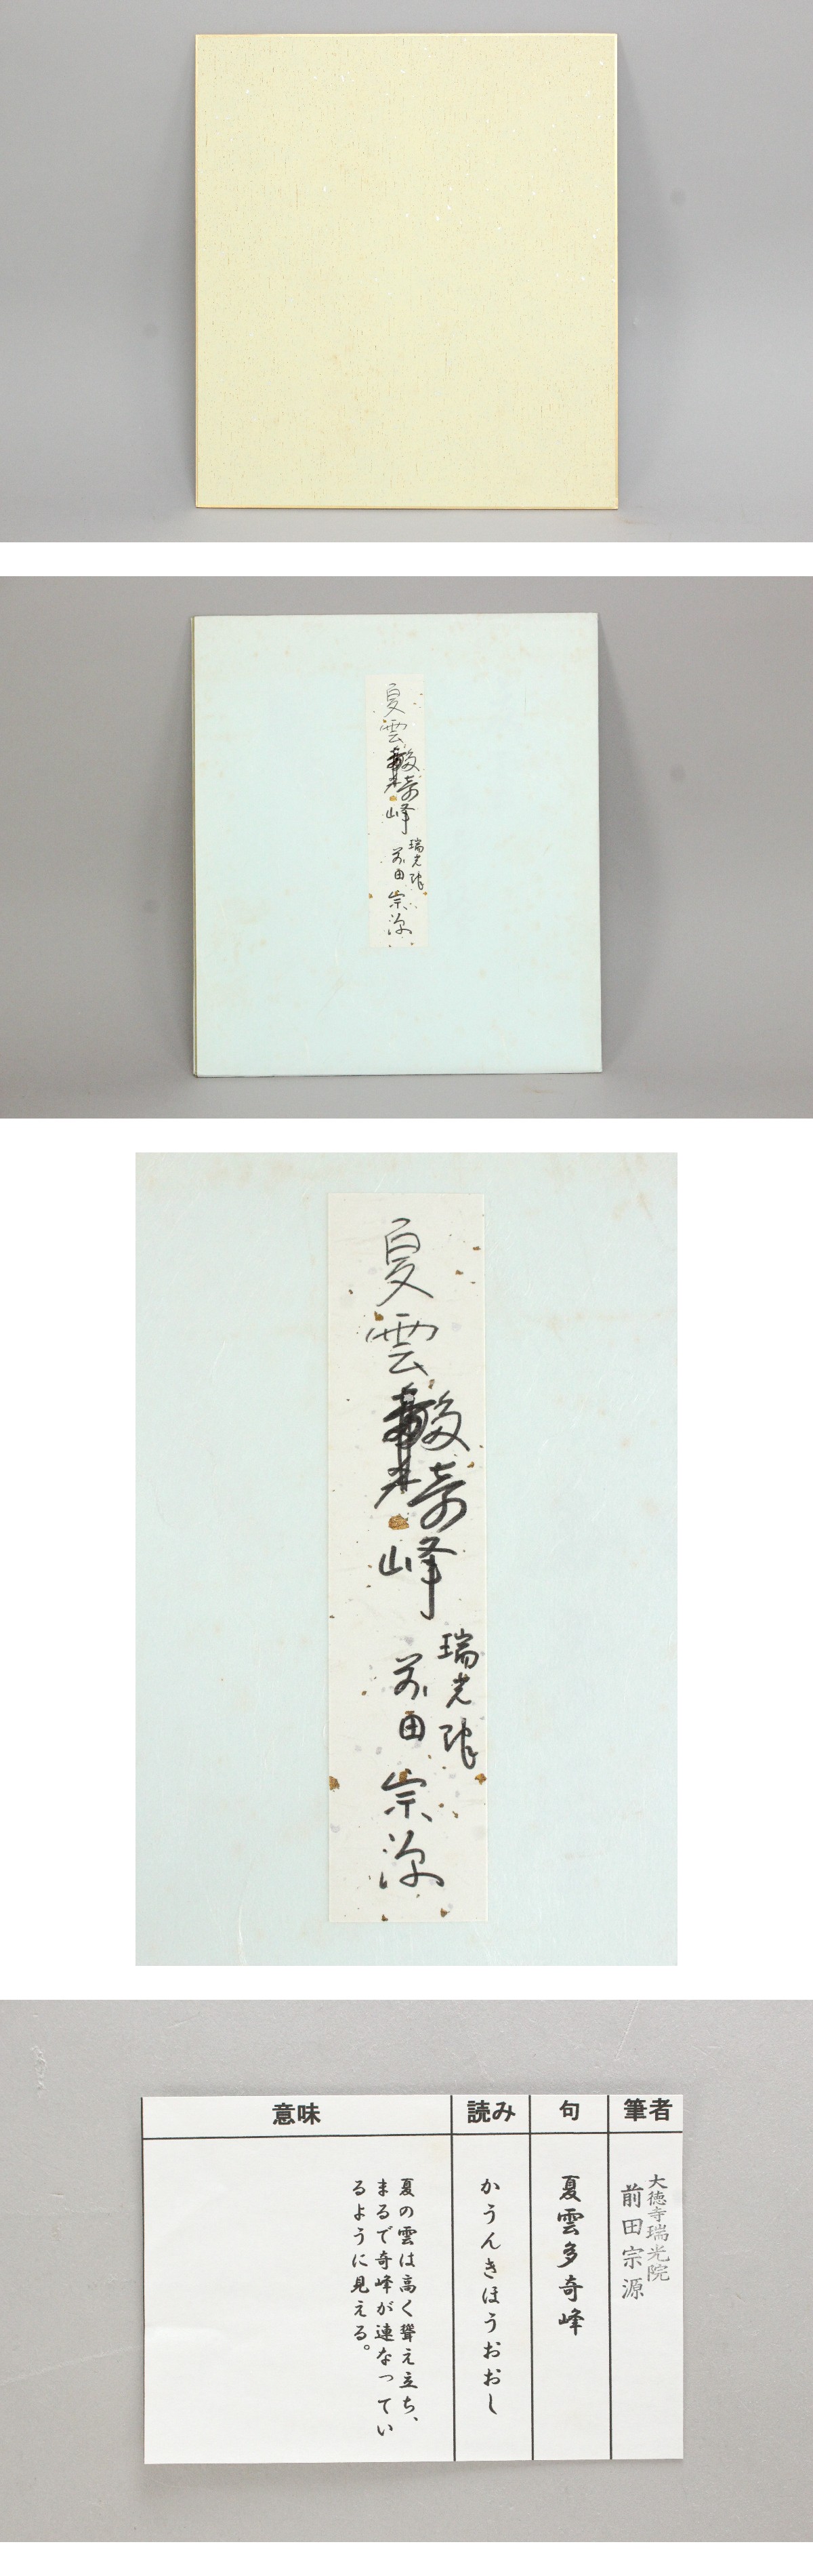 夏雲多奇峰
瑞光院
前田宗源
夏雲多奇峰
瑞光院
前田宗源
筆者
大徳寺瑞光院
前田宗源
句
夏雲多奇峰
読み
かうんきほうおおし
意味
夏の雲は高く聳え立ち、
まるで奇峰が連なってい
るように見える。